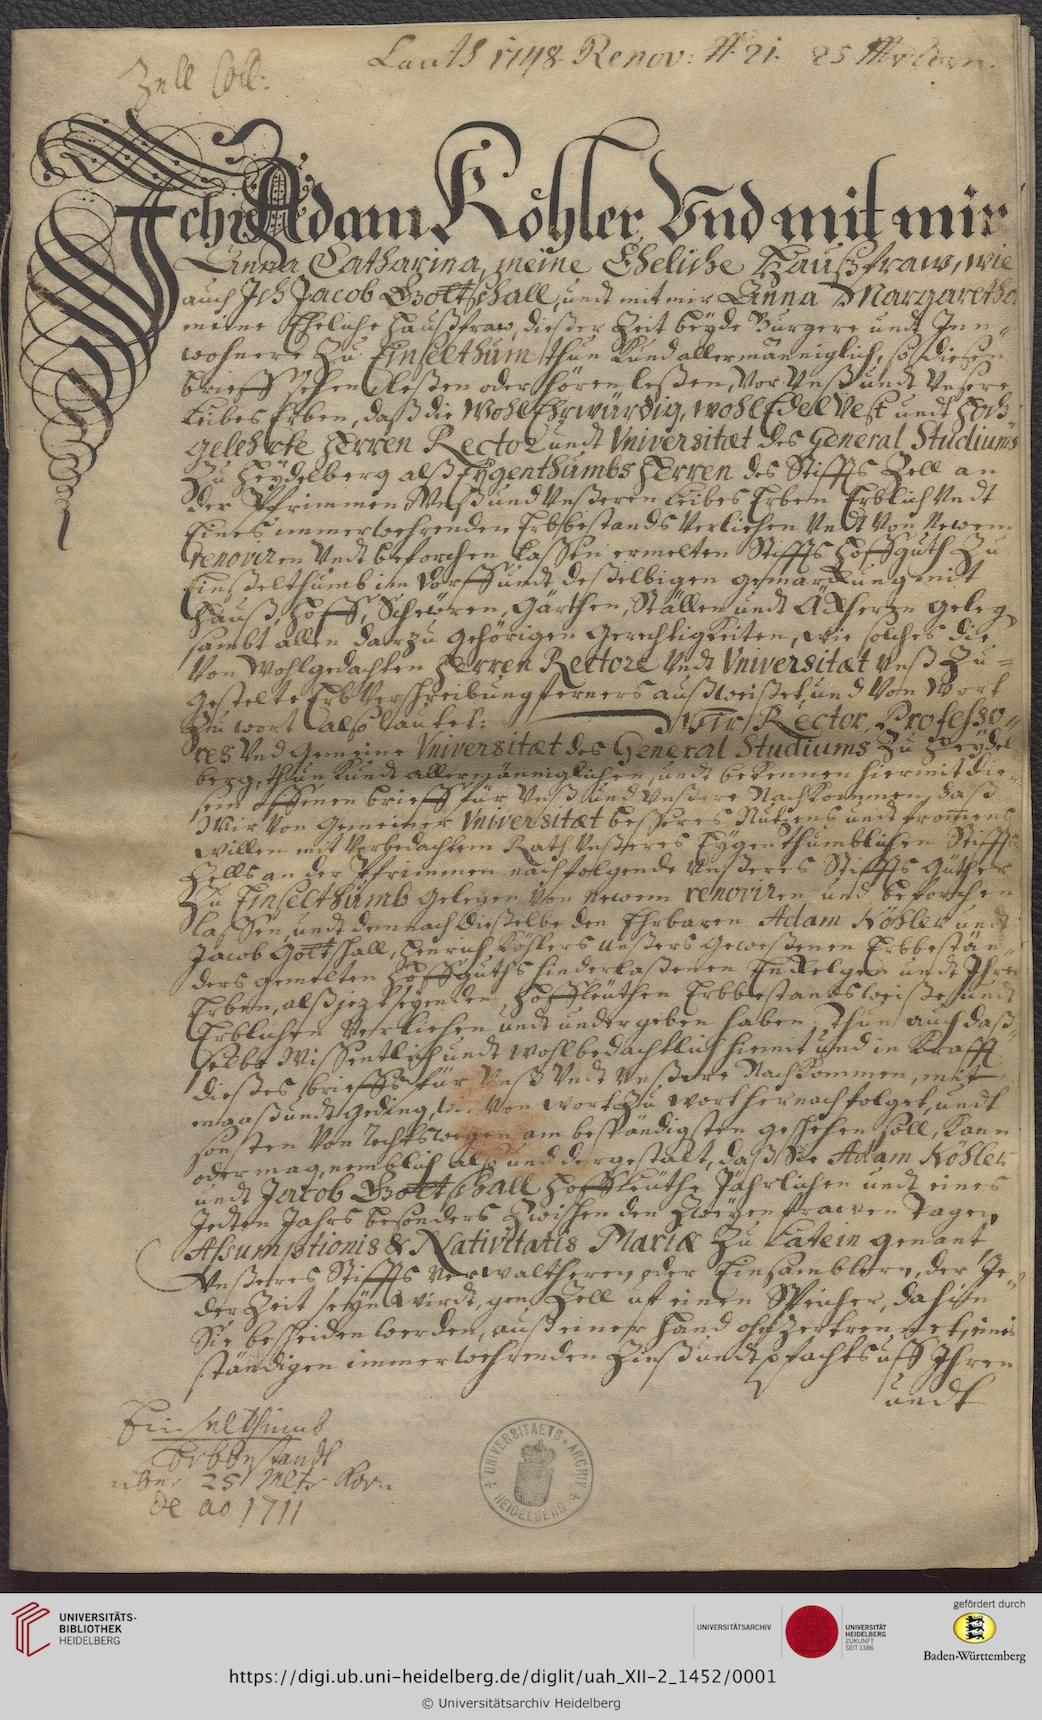 Lauth 1748 Renov: N. 21. 25 Mltr Korn.
Zell Coll:
Ich Adam Köhler Und mit mir
Anna Catharina, meine Eheliche Haußfraw, wie
auch Ich Jacob Gottschall, undt mit mir Anna Margaretha
meine Eheliche Haußfraw, dießer Zeit beyde Burgere undt Inn-
wohnere Zu Einselthum thun Kund allermänniglich, so dießen
brieff sehen leßen oder hören leßen, Vor Unß undt Unsere
Leibes Erben, daß die WohlEhrwürdig, wohlEdel Vest undt Hoch
gelehrte Herren Rector undt Universitæt des General Studiums
Zu Heydelberg alß Eygenthumbs Herren des Stiffts Zell an
der Pfrimmen Unß und Unßeren Leibes Erben Erblich Undt
Eines immerwehrenden Erbbestands Verliehen Undt Von Newem
renoviren Undt beforchen laßen ermelten Stiffts Hoffguth Zu
Einßelthumb im Dorff undt deßelbigen gemarckung mit
Hauß, Hoff, Scheuren, Gärthen, Ställen undt Äckheren geleg
sambt allen darzu gehörigen Gerechtigkeiten, wie solches die
Von Wohlgedachten Herren Rectore Undt Universitæt Unß Zu-
gestelte Erb Verschreibung ferners außweißet, und Von Wort
Zu wort also lautet: Wir Rector, Professo-
res Und Gemeine Universitæt des General Studiums Zu Heydel
berg, thun Kundt allermänniglichen, undt bekennen hiermit die-
sem offenen brieff für Unß und Unßere Nachkommen, daß
Wir Von Gemeiner Universitæt beßeres Nutzens undt frommens
willen mit Vorbedachtem Rath Unßeres Eygenthumblichen Stiffts
Zells an der Pfrimmen nachfolgende Unßeres Stiffts Güther
Zu Einselthumb gelegen Von Newem renoviren und beforchen
laßen, undt demnach dießelbe den Ehrbaren Adam Köhler undt
Jacob Gottschall, Henrich Köhlers unßers geweßenen Erbbestän-
ders gemelten Hoffguths hinderlaßenen Enckelgen undt Ihren
Erben, alß jezt seyenden Hoffleuthen Erbbestandsweiße undt
Erblichen Verliehen undt undergeben haben, Thun auch daß-
selbe Wißentlich undt wohlbedächtlich hiemit und in Krafft
dießes brieffs für Unß Undt Unßere Nachkommen, mit
maaß undt Geding, wie Von Wort Zu wort hernach folget, undt
sonsten Von Rechtswegen am beständigsten geschehen soll, Kann
oder mag, nemblich also und dergestalt, daß Sie Adam Köhler
undt Jacob Gottschall Hoffleuthe Jährlichen undt eines
Jedten Jahrs besonders Zwischen den Zweyen frawen Tagen
Assumptionis & Nativitatis Mariæ Zu Latein genant
Unßeres Stiffts Verwaltheren, oder Einsamblern, der Je-
der Zeit seyn wirdt, gen Zell uf einen Speicher, dahin
Sie bescheiden werden, auß einer Hand ohnzertrennet, eines
ständigen immerwehrenden Zinß undt pfachts uff Ihren
undt
Einselthumb
Erbbestandt
über 25 Mltr Kor.
de ao 1711
UNIVERSITAETS-ARCHIV
HEIDELBERG
UNIVERSITÄTS-
BIBLIOTHEK
HEIDELBERG
UNIVERSITÄTSARCHIV
UNIVERSITÄT
HEIDELBERG
ZUKUNFT
SEIT 1386
gefördert durch
Baden-Württemberg
https://digi.ub.uni-heidelberg.de/diglit/uah_XII-2_1452/0001
© Universitätsarchiv Heidelberg